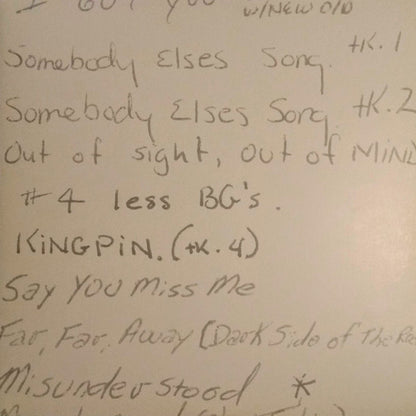 I GOT YOU W/NEW O/D
Somebody Elses Song. tK. 1
Somebody Elses Song. tK. 2
Out of sight, Out of MIND
#4 less BG's.
KiNGPiN. (tK. 4)
Say You Miss Me
Far, Far, Away [Dark Side of The
Misunderstood *